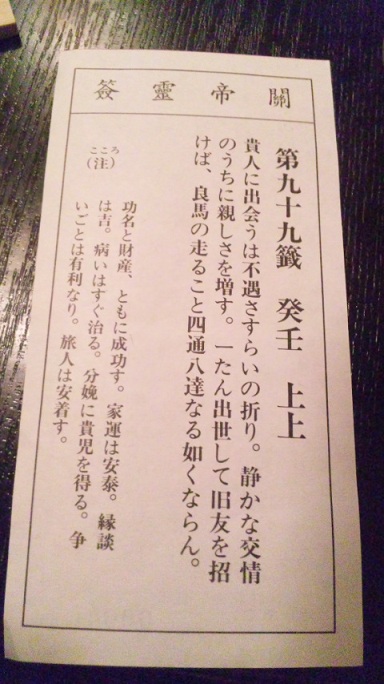 關帝靈簽
第九十九籤　癸壬　上上
貴人に出会うは不遇さすらいの折り。静かな交情
のうちに親しさを増す。一たん出世して旧友を招
けば、良馬の走ること四通八達なる如くならん。
こころ
（注）
功名と財産、ともに成功す。家運は安泰。縁談
は吉。病いはすぐ治る。分娩に貴児を得る。争
いごとは有利なり。旅人は安着す。